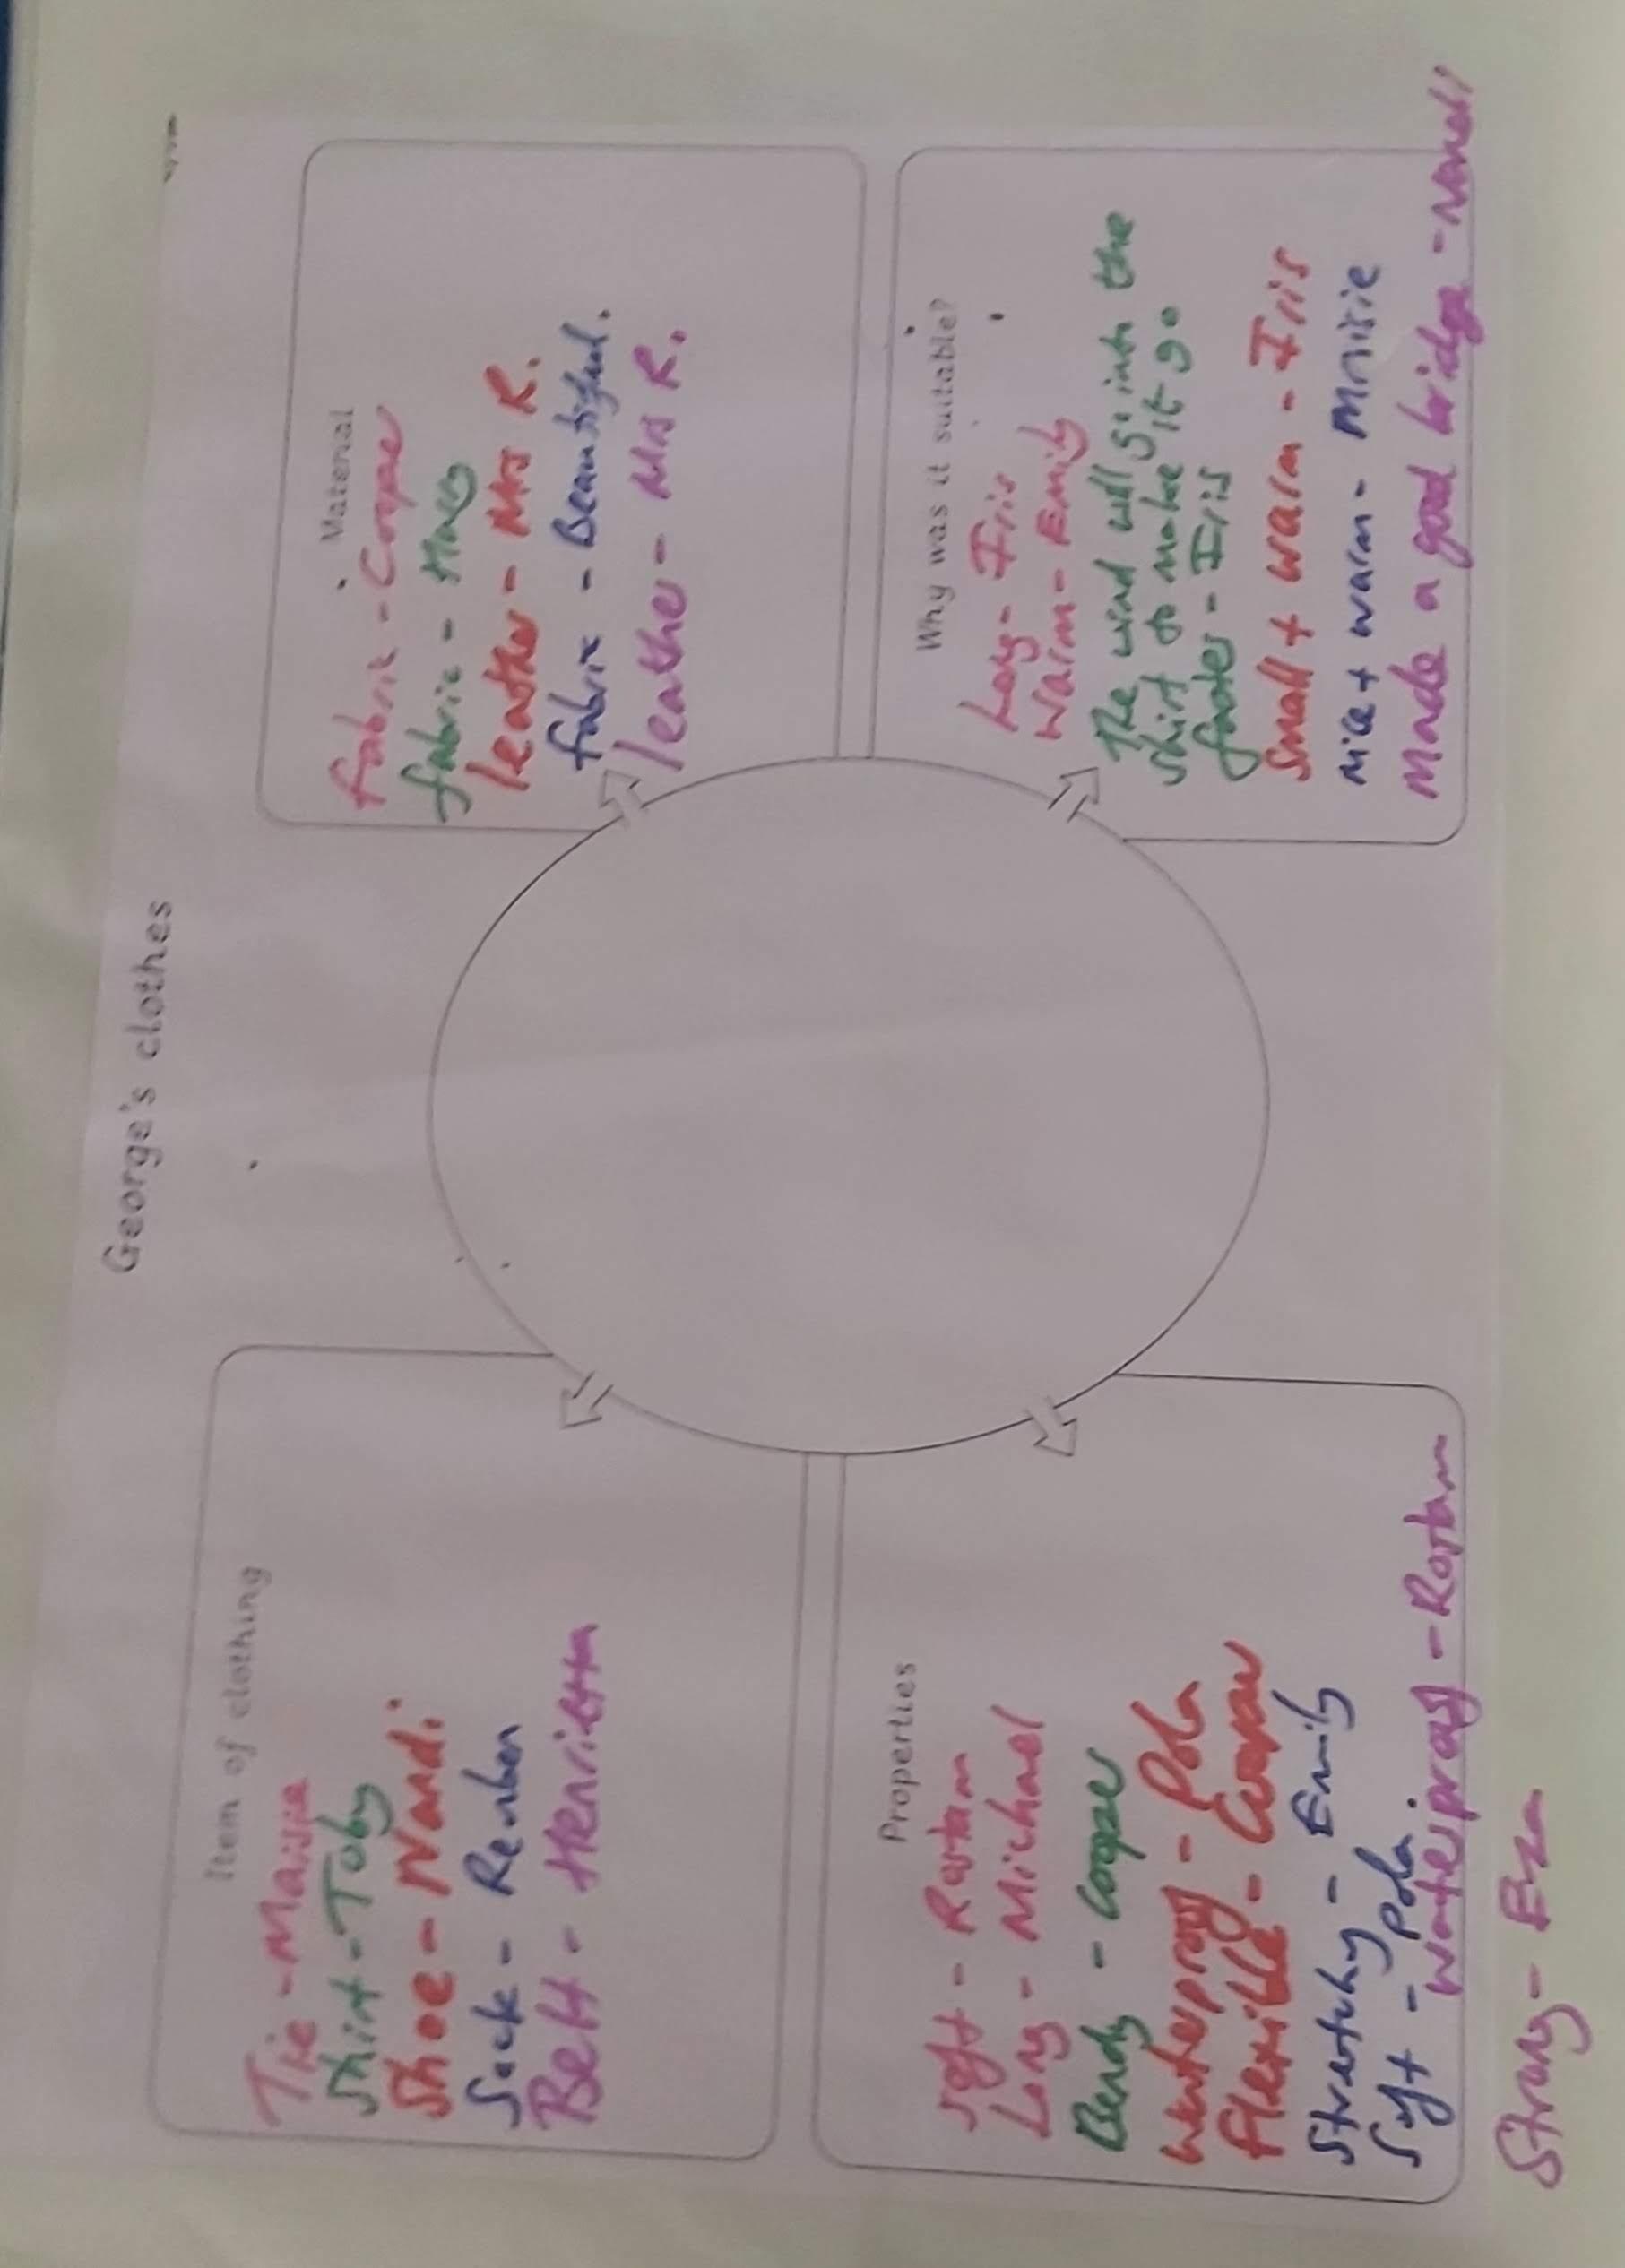 George's clothes
Item of clothing
Tie - Maisie
Shirt - Toby
Shoe - Nandi
Sock - Reuben
Belt - Henrietta
Material
fabric - Cooper
fabric - Hug
leather - Mrs R.
fabric - Beautiful.
leather - Mrs R.
Properties
soft - Rostam
Long - Michael
Bendy - Cooper
waterproof - Pola
flexible - Cooper
Stretchy - Emily
Soft - Pola.
waterproof - Rostam
Strong - Eza
Why was it suitable?
Long - Iris
Warm - Emily
The wind will go into the
shirt to make it go
faster - Iris
Small + warm - Iris
nice + warm - Maisie
Made a good bridge - Nandi